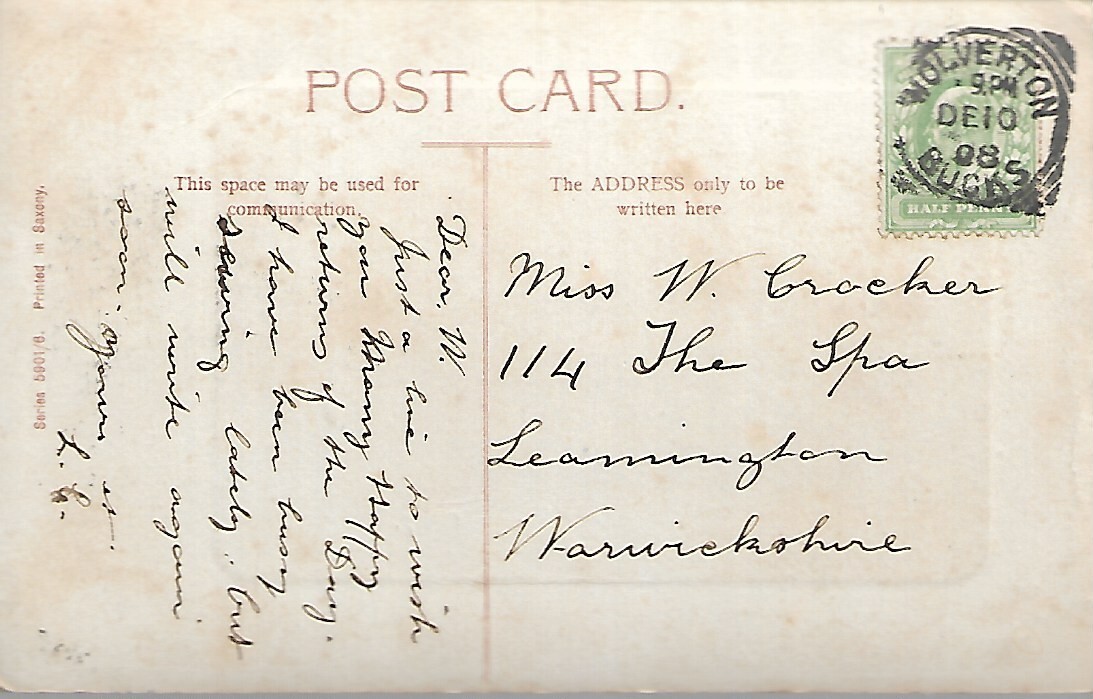 POST CARD.
This space may be used for
communication.
The ADDRESS only to be
written here
WOLVERTON
9PM
DE10
08
BUCKS
HALF PENNY
Miss W. Crocker
114 The Spa
Leamington
Warwickshire
Dear W.
Just a line to wish
you Many Happy
returns of the Day.
I have been busy
sewing lately. but
will write again
soon. Yours et.
L.
Series 5901/6. Printed in Saxony.